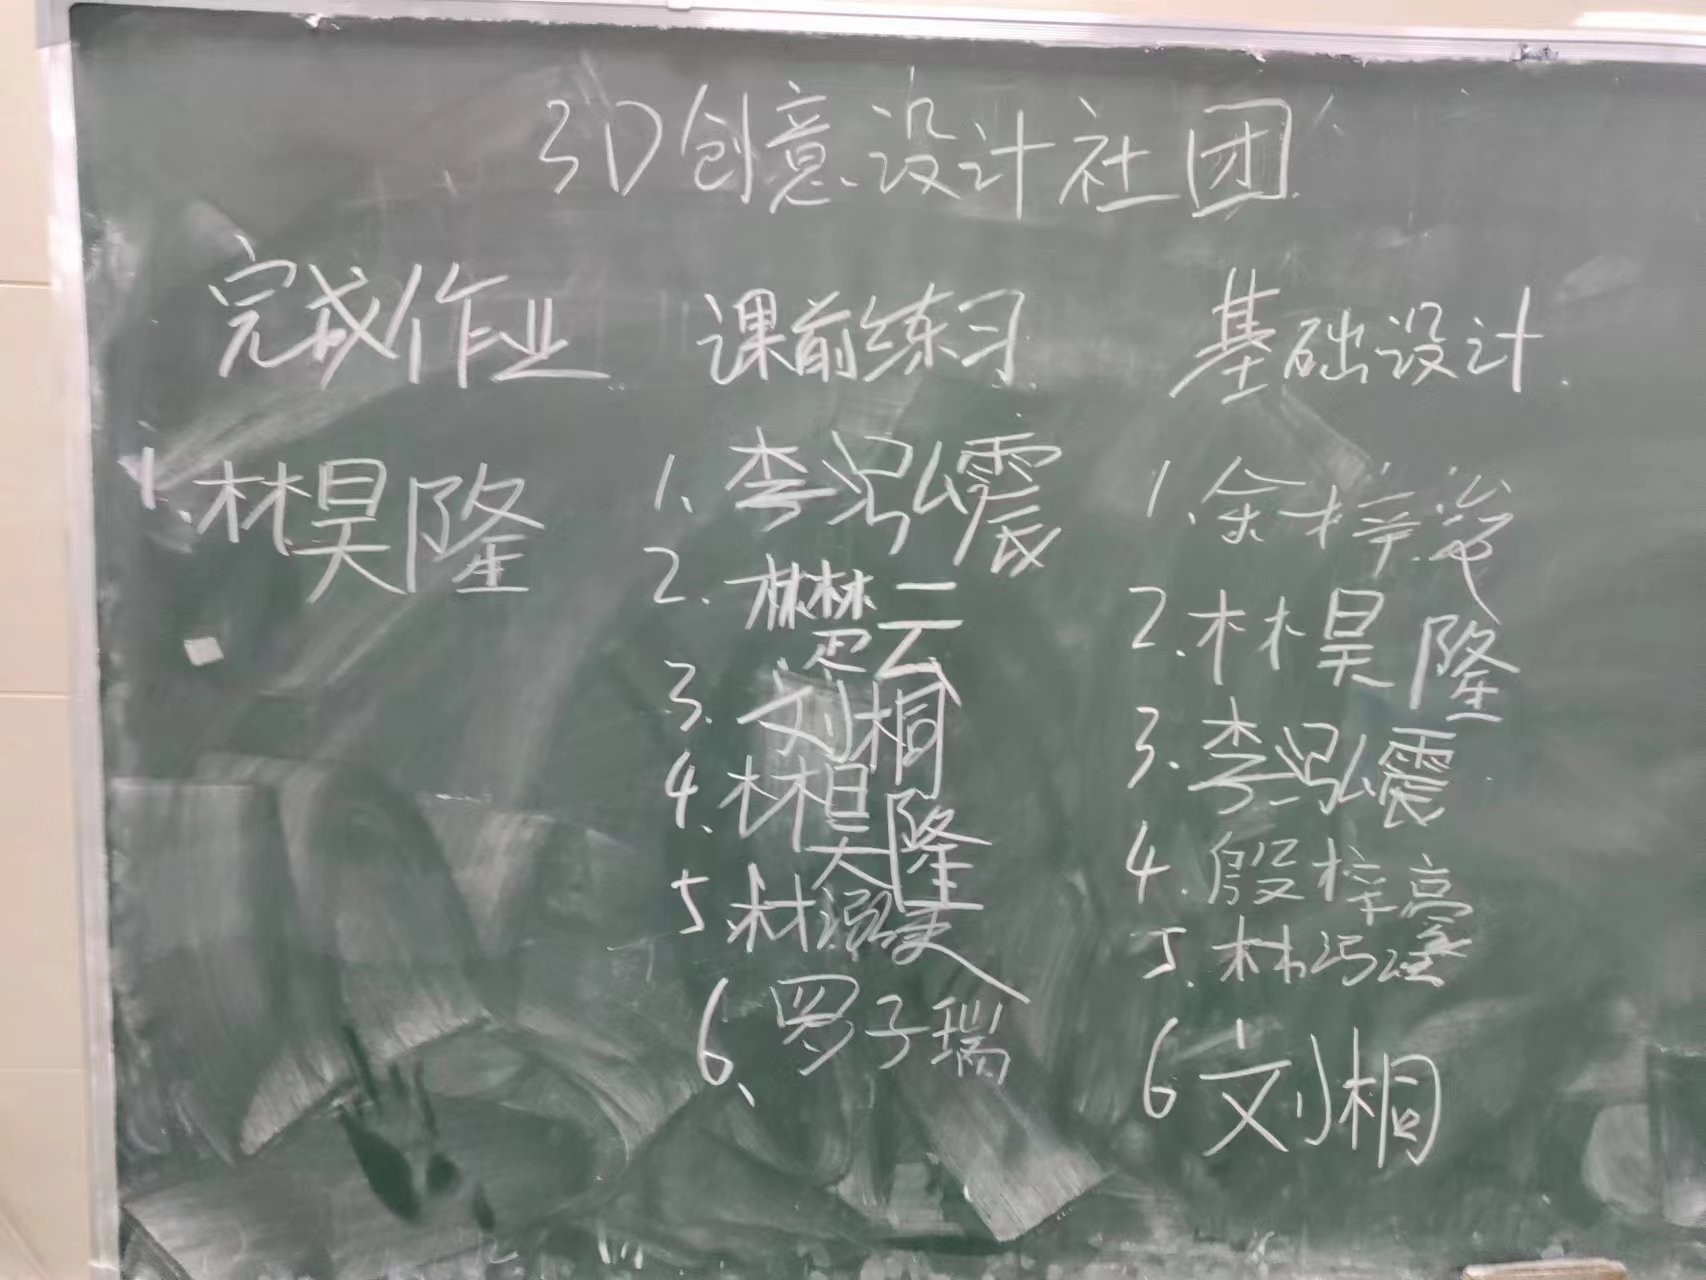 3D创意设计社团
完成作业 课前练习 基础设计
1.林昊隆
1.李泓震
2.
3.刘桐
4.林昊隆
5.林
6.罗子瑞
1.余梓浚
2.林昊隆
3.李泓震
4.殷梓亮
5.林
6 刘桐